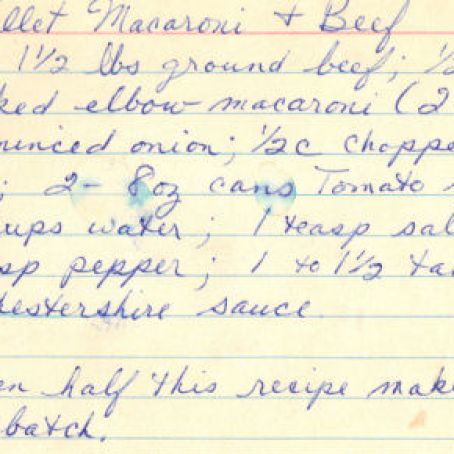 llet Macaroni + Beef
1½ lbs ground beef; ½
ked elbow macaroni (2
minced onion; ½c choppe
; 2- 8oz cans Tomato s
ups water; 1 teasp sal
sp pepper; 1 to 1½ ta
chestershire sauce.
en half this recipe mak
batch.